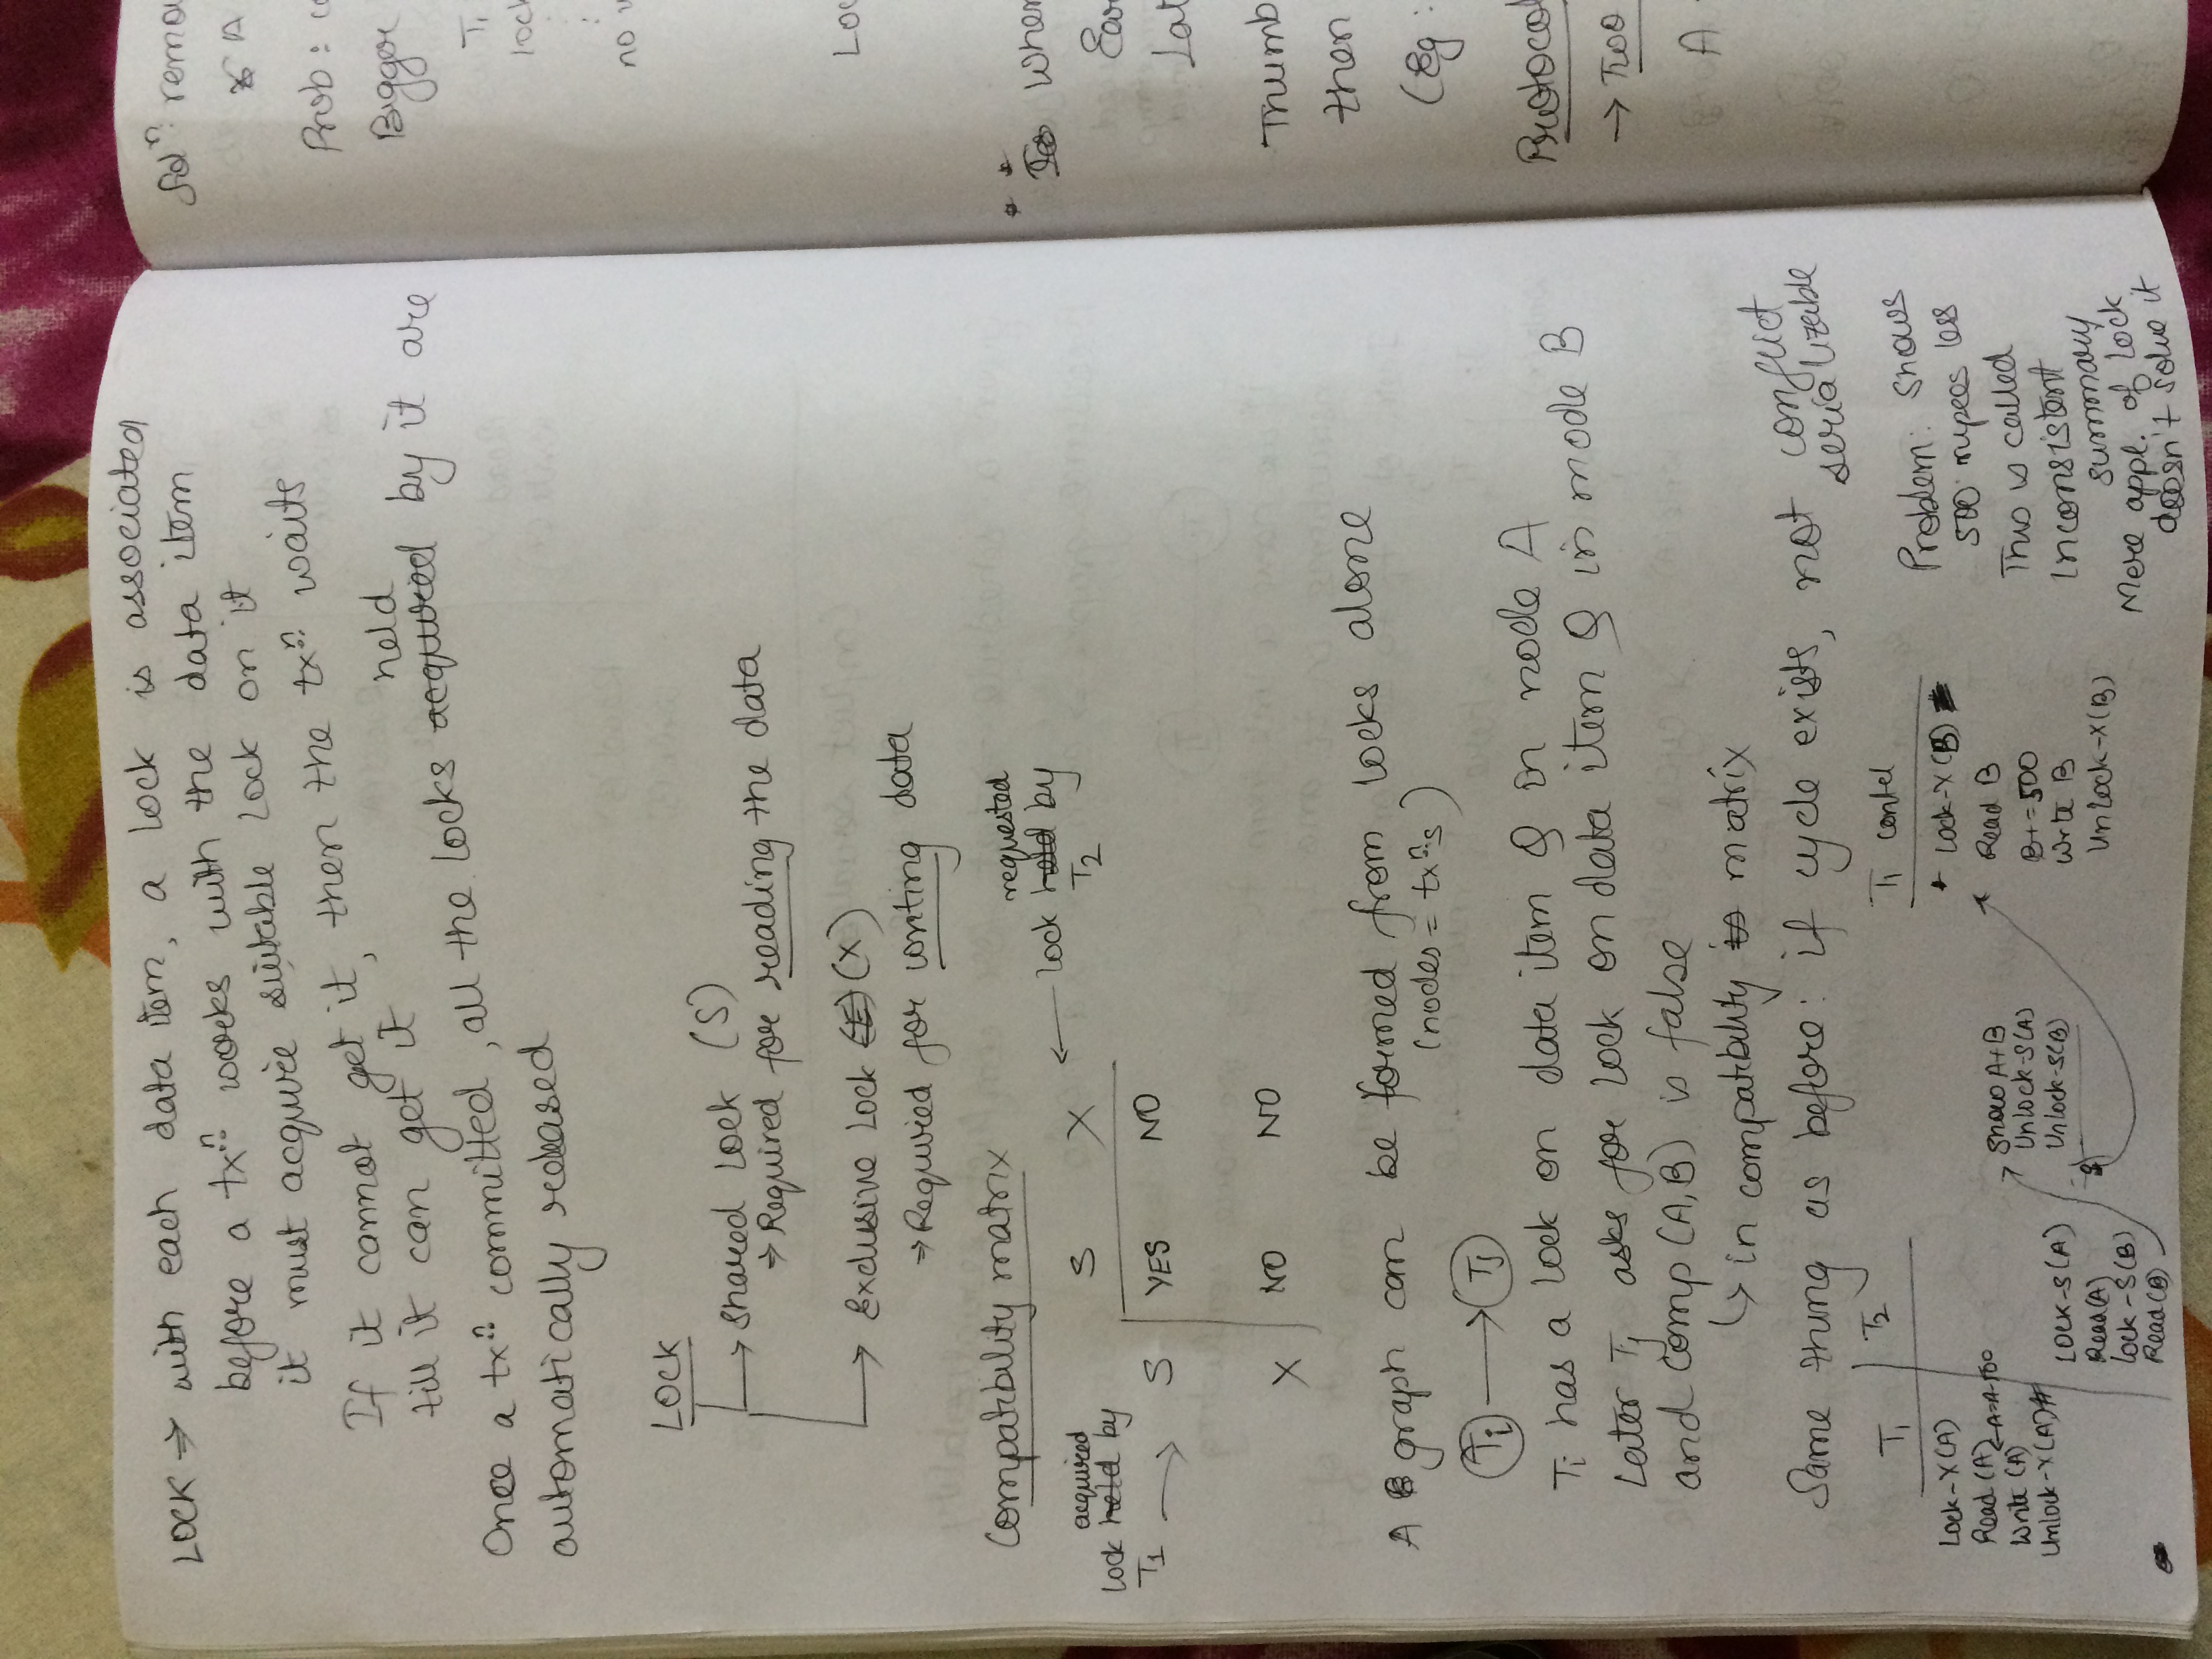 LOCK ⇒ with each data item, a lock is associated
before a txⁿ works with the data item
it must acquire suitable lock on it
If it cannot get it, then the txⁿ waits
till it can get it
held
Once a txⁿ committed, all the locks acquired by it are
automatically released
LOCK
→ Shared Lock (S)
⇒ Required for reading the data
→ Exclusive Lock (E) (X)
⇒ Required for writing data
Compatibility matrix
requested
S X ← lock held by
T2
acquired
lock held by
T1 → S YES NO
X NO NO
A graph can be formed from locks alone
(nodes = txⁿs)
Ti → Tj
Ti has a lock on data item Q in node A
Later Tj asks for lock on data item Q in mode B
and comp (A,B) is false
↳ in compatibility matrix
Same thing as before: if cycle exists, not conflict
serializable
T1 T2
Lock-X(A)
Read (A) A=A-500
Write (A)
Unlock-X(A)
LOCK-S(A)
Read(A)
Lock-S(B)
Read(B)
Show A+B
Unlock-S(A)
Unlock-S(B)
T1 contd
Lock-X(B)
Read B
B+=500
Write B
UnLock-X(B)
Problem: Shows
500 rupees less
This is called
Inconsistent
summary
Mere appl. of lock
doesn't solve it
Solⁿ: remo
A
Prob:
Bigger
T1
lock
:
:
no
Loc
When
Ear
Lat
Thumb
then
(Eg:
Protocol
→ Two
A